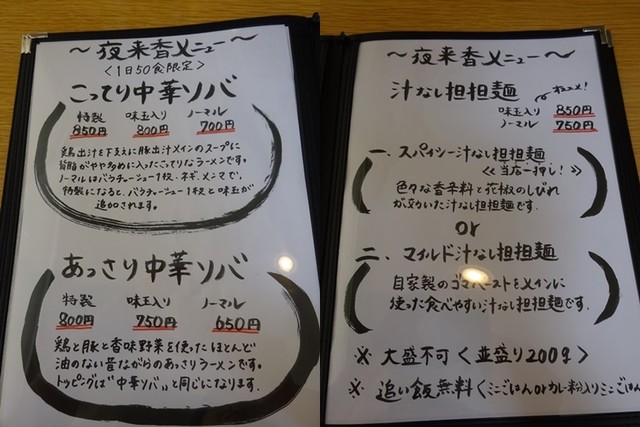 ～夜来香メニュー～
〈1日50食限定〉
こってり中華ソバ
特製 味玉入り ノーマル
850円 800円 700円
鶏出汁を下支えに豚出汁メインのスープに
背脂がやや多めに入ったこってりなラーメンです。
ノーマルはバラチャーシュー1枚、ネギ、メンマで、
特製になると、バラチャーシュー1枚と味玉が
追加されます。
あっさり中華ソバ
特製 味玉入り ノーマル
800円 750円 650円
鶏と豚と香味野菜を使ったほとんど
油のない昔ながらのあっさりラーメンです。
トッピングは"中華ソバ"と同じになります。
～夜来香メニュー～
汁なし担担麺
味玉入り 850円
ノーマル 750円
一、スパイシー汁なし担担麺
≪当店一押し！≫
色々な香辛料と花椒のしびれ
が効いた汁なし担担麺です.
or
二、マイルド汁なし担担麺
自家製のゴマペーストをメインに
使った食べやすい汁なし担担麺です.
※ 大盛不可〈並盛り200g〉
※ 追い飯無料〈ミニごはんorカレー粉入りミニごはん